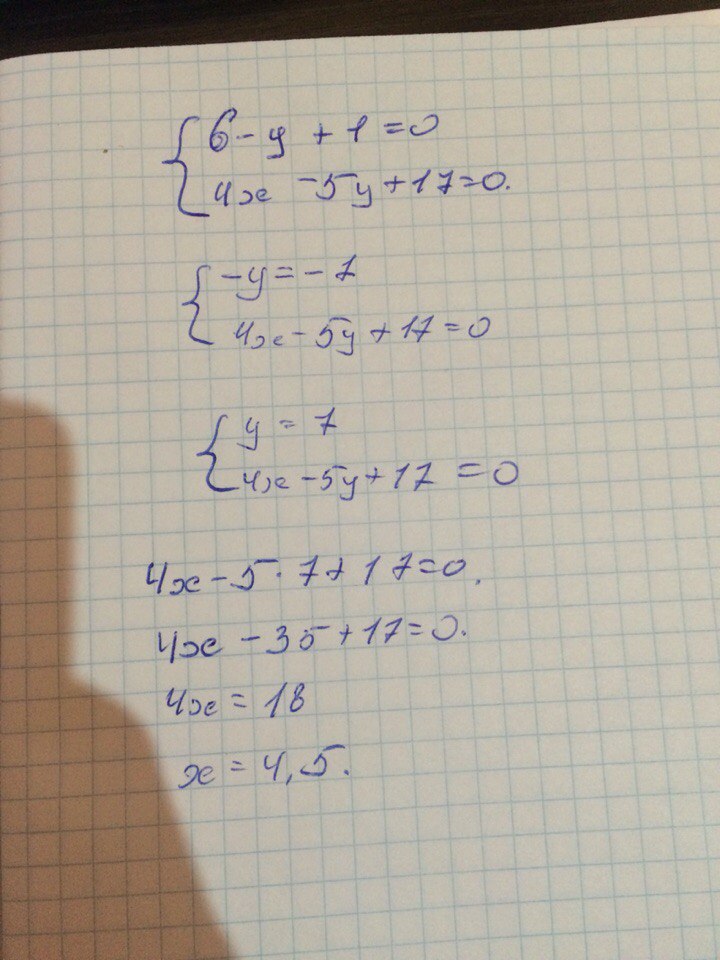 6 - y + 1 = 0
4x - 5y + 17 = 0.
-y = -7
4x - 5y + 17 = 0
y = 7
4x - 5y + 17 = 0
4x - 5 · 7 + 17 = 0.
4x - 35 + 17 = 0.
4x = 18
x = 4,5.